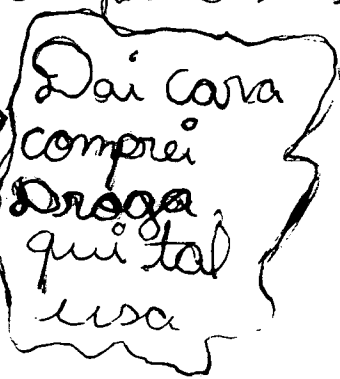 Dai cara
comprei
Droga,
qui tal
usa